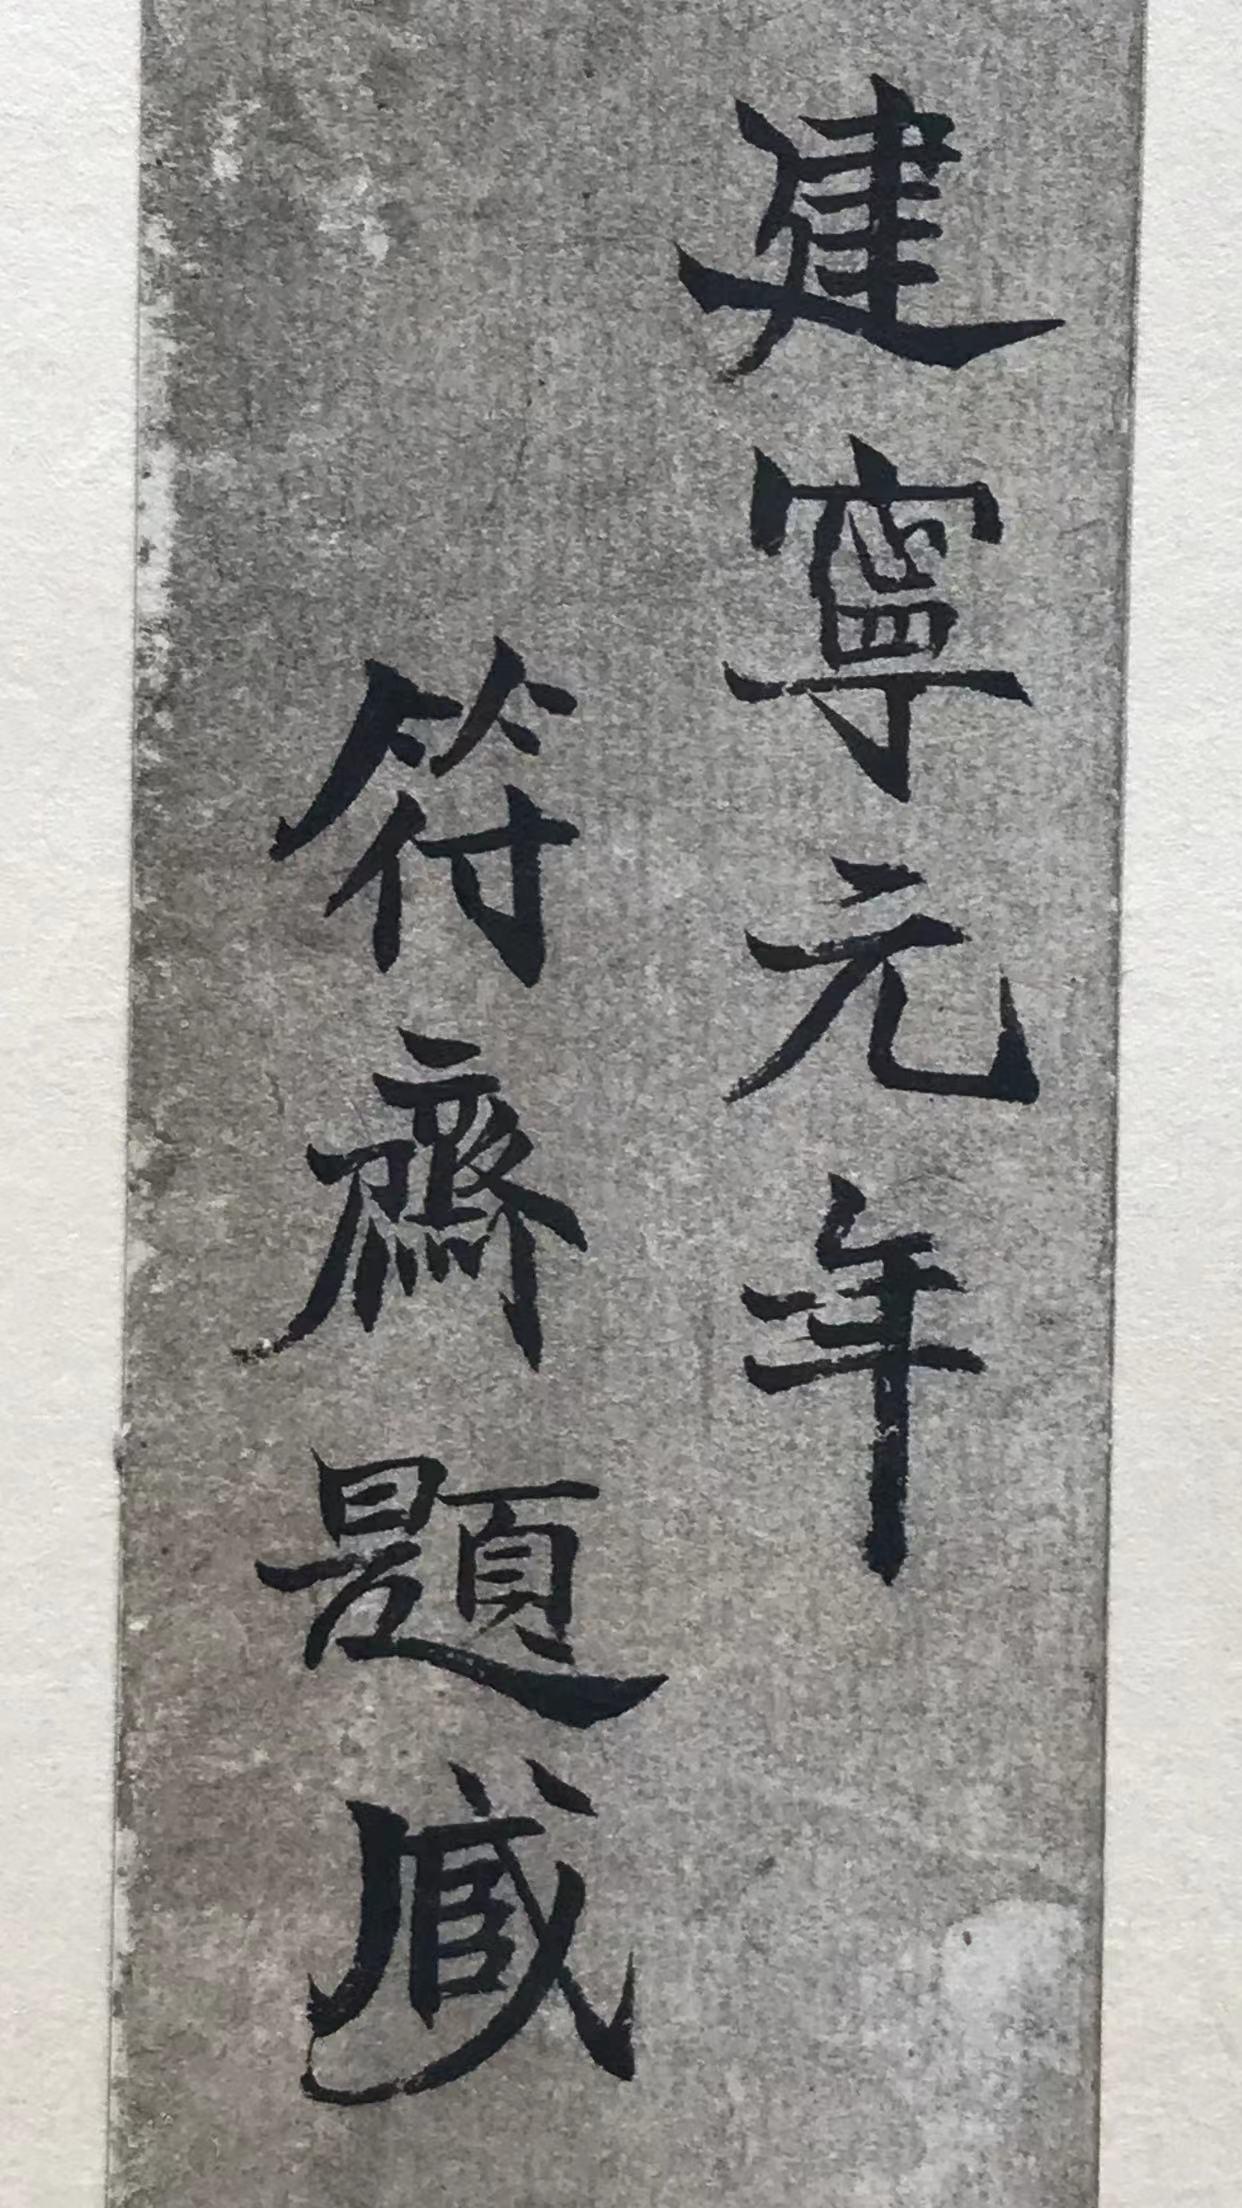 建寧元年
符齋題臧